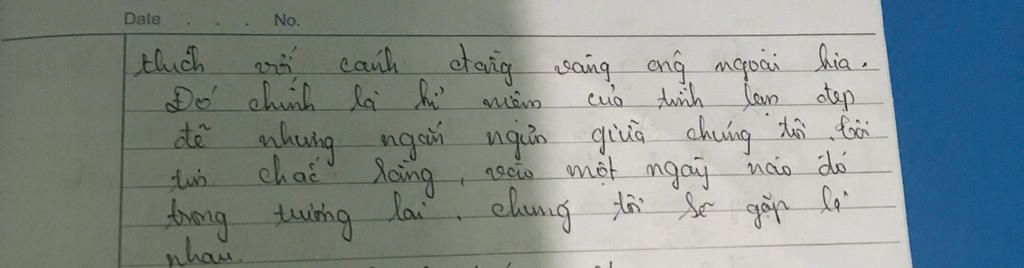 Date . . . No.
thích với cánh đồng vàng óng ngoài kia.
Đó chính là kỉ niệm của tình bạn đẹp
đẽ nhưng ngắn ngủi giữa chúng tôi. Tôi
tin chắc rằng, vào một ngày nào đó
trong tương lai, chúng tôi sẽ gặp lại
nhau.